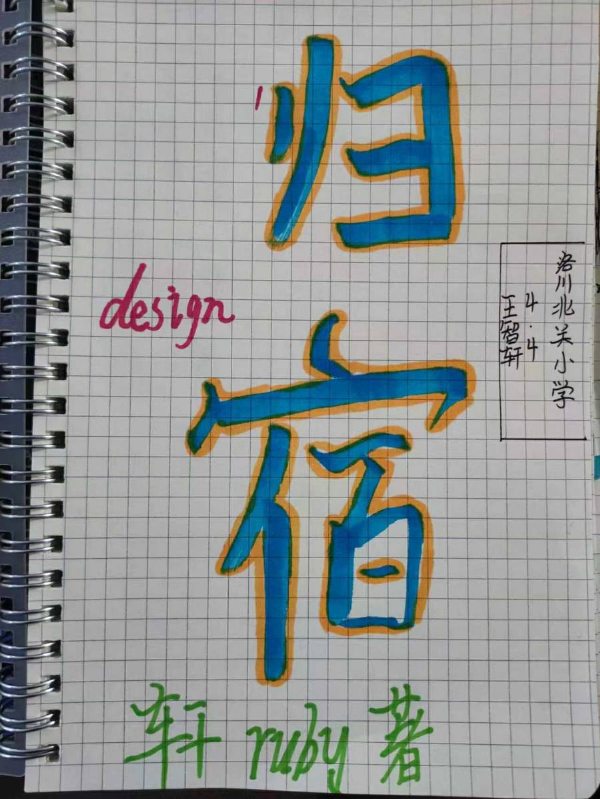 归宿
design
洛川北关小学
4.4
王智轩
轩 ruby 著